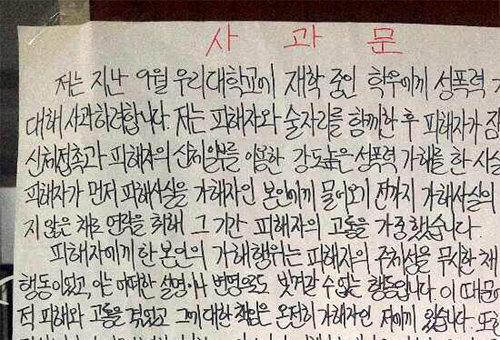 사 과 문
저는 지난 9월 우리대학교에 재학 중인 학우에게 성폭력
대해 사과하려합니다. 저는 피해자와 술자리를 함께한 후 피해자가
신체접촉과 피해자의 신체일부를 이용한 강도높은 성폭력 가해를 한 사실
피해자가 먼저 피해사실을 가해자인 본인에게 물어오기 전까지 가해사실의
지 않은 채로 연락을 취해 그 기간 피해자의 고통을 가중했습니다.
피해자에게 한 본인의 가해행위는 피해자의 주체성을 무시한 채
행동이었고, 이는 어떠한 설명이나 변명으로도 빗겨갈 수 없는 행동입니다. 이 때문에
적 피해와 고통을 겪었고 그에 대한 책임은 온전히 가해자인 저에게 있습니다. 또한